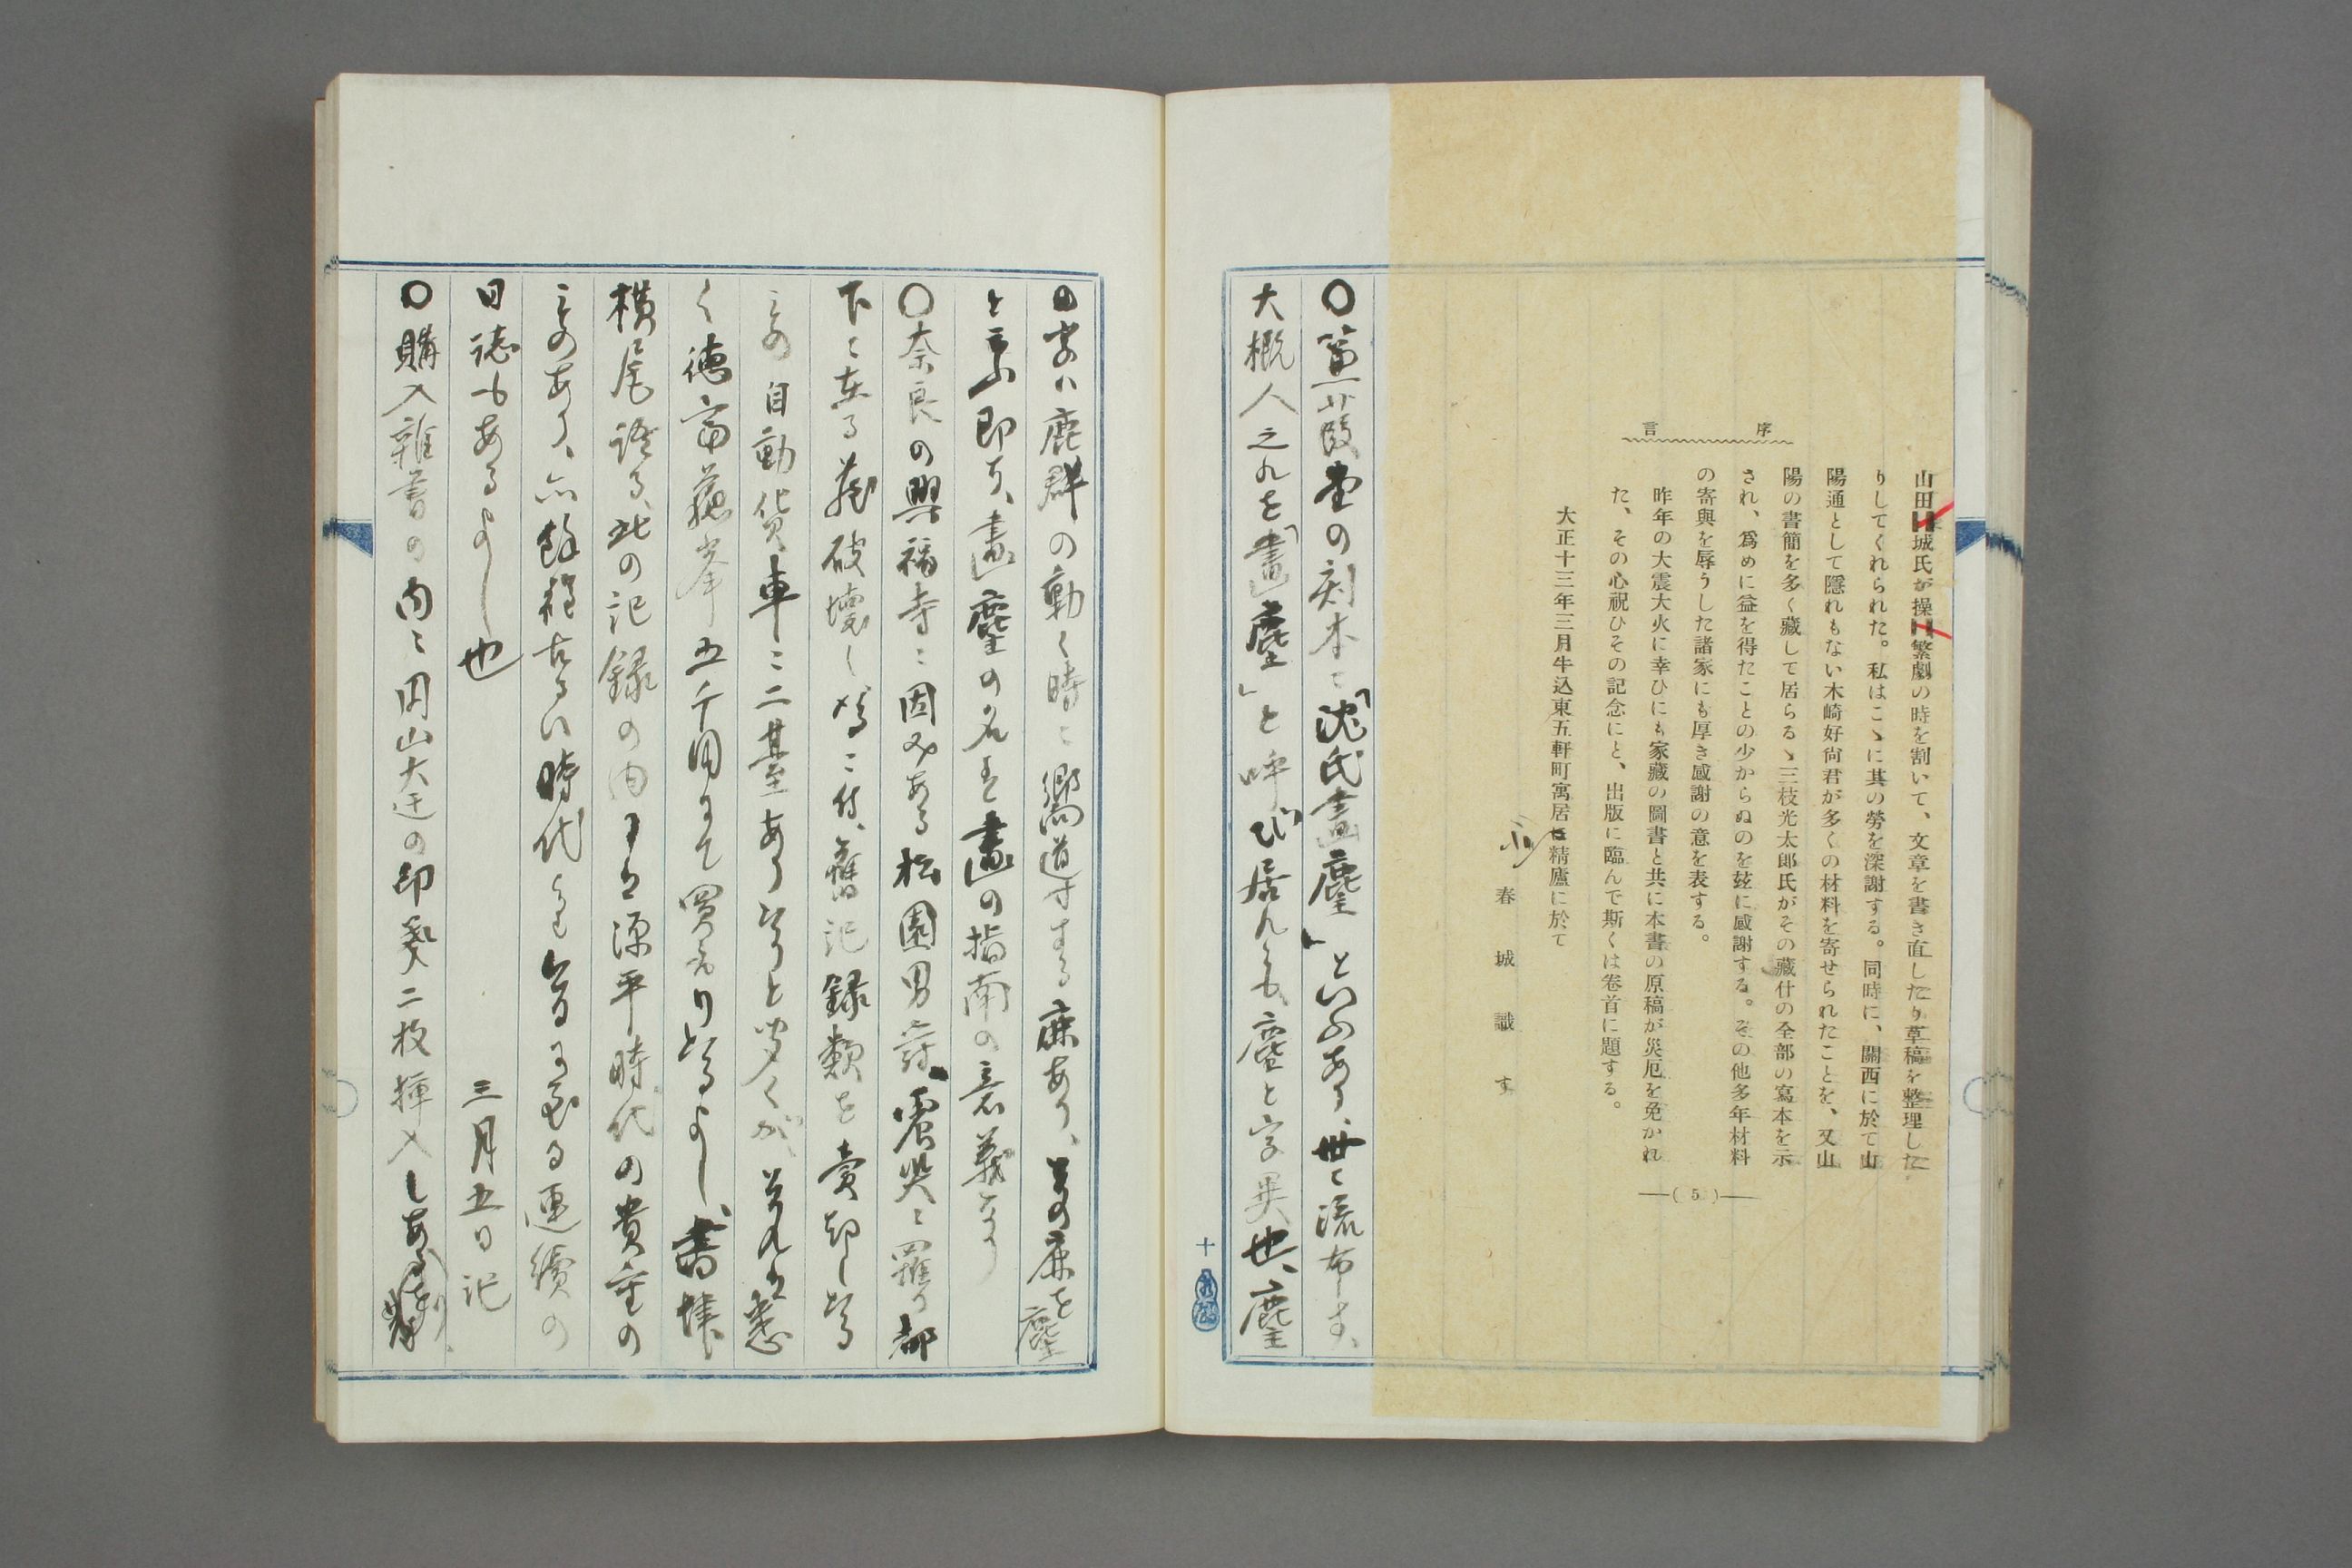 序言
山田城氏が操繁劇の時を割いて、文章を書き直したり草稿を整理した
りしてくれられた。私はこゝに其の勞を深謝する。同時に、關西に於て山
陽通として隱れもない木崎好尙君が多くの材料を寄せられたことを、又山
陽の書簡を多く藏して居らるゝ三枝光太郎氏がその藏什の全部の寫本を示
され、爲めに益を得たことの少からぬのを玆に感謝する。その他多年材料
の寄與を辱うした諸家にも厚き感謝の意を表する。
昨年の大震大火に幸ひにも家藏の圖書と共に本書の原稿が災厄を免かれ
た、その心祝ひその記念にと、出版に臨んで斯くは卷首に題する。
大正十三年三月牛込東五軒町寓居精廬に於て
春城識す
(5)
〇蒹葭堂の刻本ニ「沈氏畫麈」といふあり、世ニ流布す、
大概人之れを「畫塵」と呼び居れとも、塵と字異也、麈
十
ハ鹿群の動く時ニ嚮道する鹿あり、其の鹿を麈
と云ふ即ち、畫麈の名は畫の指南の意義なり
〇奈良の興福寺ニ因みある松園男爵、震災ニ罹り都
下ニ在る藏破壞し為ニ付、舊記録類を賣却し
其の自動貨車ニ二基ありと聞くが、それは悉
く徳富蘇峯五千円にて買ありたるよし、書堆
横尾語る、此の記録の内には源平時代の貴重の
ものあり、六餘程古るい時代より昔に至る連續の
日誌もあるよし也　三月五日記
〇購入雜書の内ニ円山大迂の印影二枚挿入しある